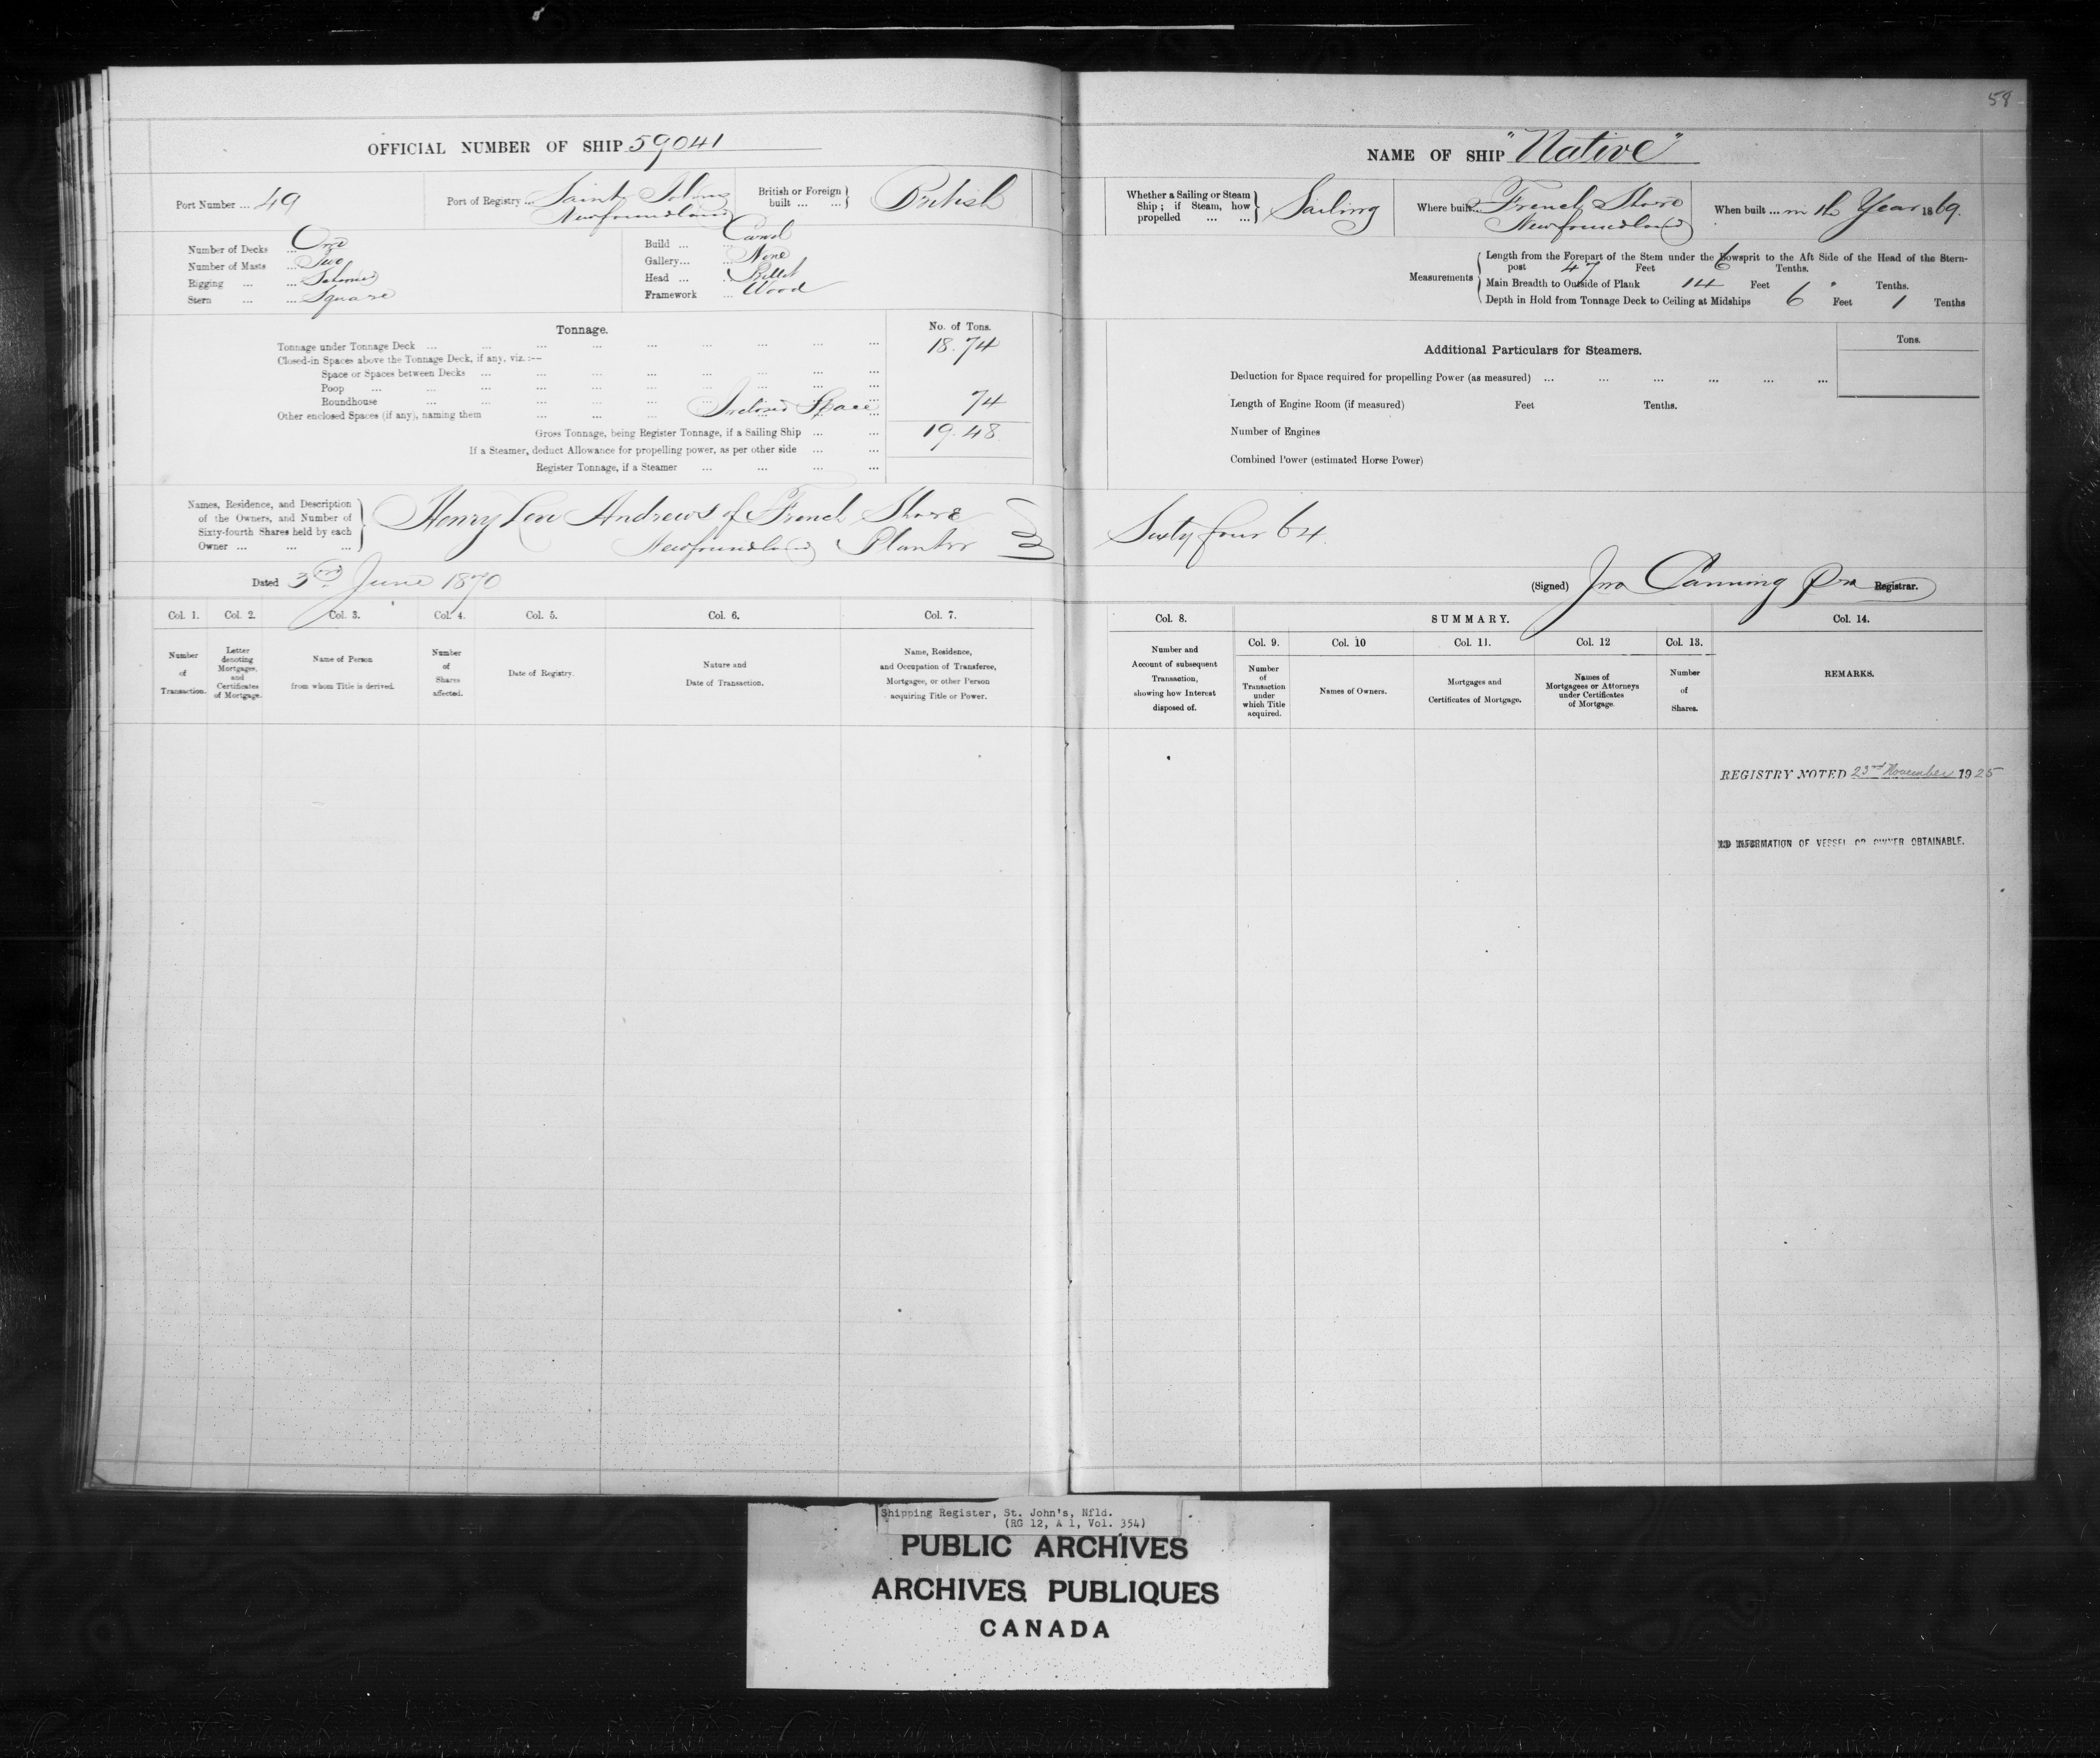 58
OFFICIAL NUMBER OF SHIP 59041
Port Number ... 49
Port of Registry ... Saint Johns
Newfoundland
British or Foreign built ... ... British
Number of Decks ... One
Number of Masts ... Two
Rigging ... ...
Stern ... ... Square
Build ... ... Carvel
Gallery... ... None
Head ... ... Billet
Framework ... Wood
Tonnage.
No. of Tons.
Tonnage under Tonnage Deck ... ... ... ... ... ... ... ... 18.74
Closed-in Spaces above the Tonnage Deck, if any, viz. :—
Space or Spaces between Decks ... ... ... ... ... ... ...
Poop ... ... ... ... ... ... ... ...
Roundhouse ... ... ... ... ... ... ...
Other enclosed Spaces (if any), naming them ... ... ... Space 74
Gross Tonnage, being Register Tonnage, if a Sailing Ship ... ... 19.48
If a Steamer, deduct Allowance for propelling power, as per other side ... ...
Register Tonnage, if a Steamer ... ... ... ...
Names, Residence, and Description
of the Owners, and Number of
Sixty-fourth Shares held by each
Owner ... ... ...
Henry Andrews of French Shore
Newfoundland Planter
Dated 3rd June 1870
Col. 1. Col. 2. Col. 3. Col. 4. Col. 5. Col. 6. Col. 7.
Number of Transaction.
Letter denoting Mortgages, and Certificates of Mortgage.
Name of Person from whom Title is derived.
Number of Shares affected.
Date of Registry.
Nature and Date of Transaction.
Name, Residence, and Occupation of Transferee, Mortgagee, or other Person acquiring Title or Power.
NAME OF SHIP "Native"
Whether a Sailing or Steam Ship ; if Steam, how propelled ... ... Sailing
Where built... French Shore
Newfoundland
When built ... in the Year 1869.
Measurements
Length from the Forepart of the Stem under the Bowsprit to the Aft Side of the Head of the Stern-
post 47 Feet 6 Tenths.
Main Breadth to Outside of Plank 14 Feet 6 " Tenths.
Depth in Hold from Tonnage Deck to Ceiling at Midships 6 Feet 1 Tenths
Additional Particulars for Steamers.
Tons.
Deduction for Space required for propelling Power (as measured) ... ... ... ... ... ...
Length of Engine Room (if measured) Feet Tenths.
Number of Engines
Combined Power (estimated Horse Power)
Sixty four 64
(Signed) Jno Canning Registrar.
Col. 8. SUMMARY. Col. 14.
Col. 9. Col. 10 Col. 11. Col. 12 Col. 13.
Number and Account of subsequent Transaction, showing how Interest disposed of.
Number of Transaction under which Title acquired.
Names of Owners.
Mortgages and Certificates of Mortgage.
Names of Mortgagees or Attorneys under Certificates of Mortgage.
Number of Shares.
REMARKS.
REGISTRY NOTED 23rd November 1925
NO INFORMATION OF VESSEL OR OWNER OBTAINABLE.
Shipping Register, St. John's, Nfld.
(RG 12, A 1, Vol. 354)
PUBLIC ARCHIVES
ARCHIVES PUBLIQUES
CANADA